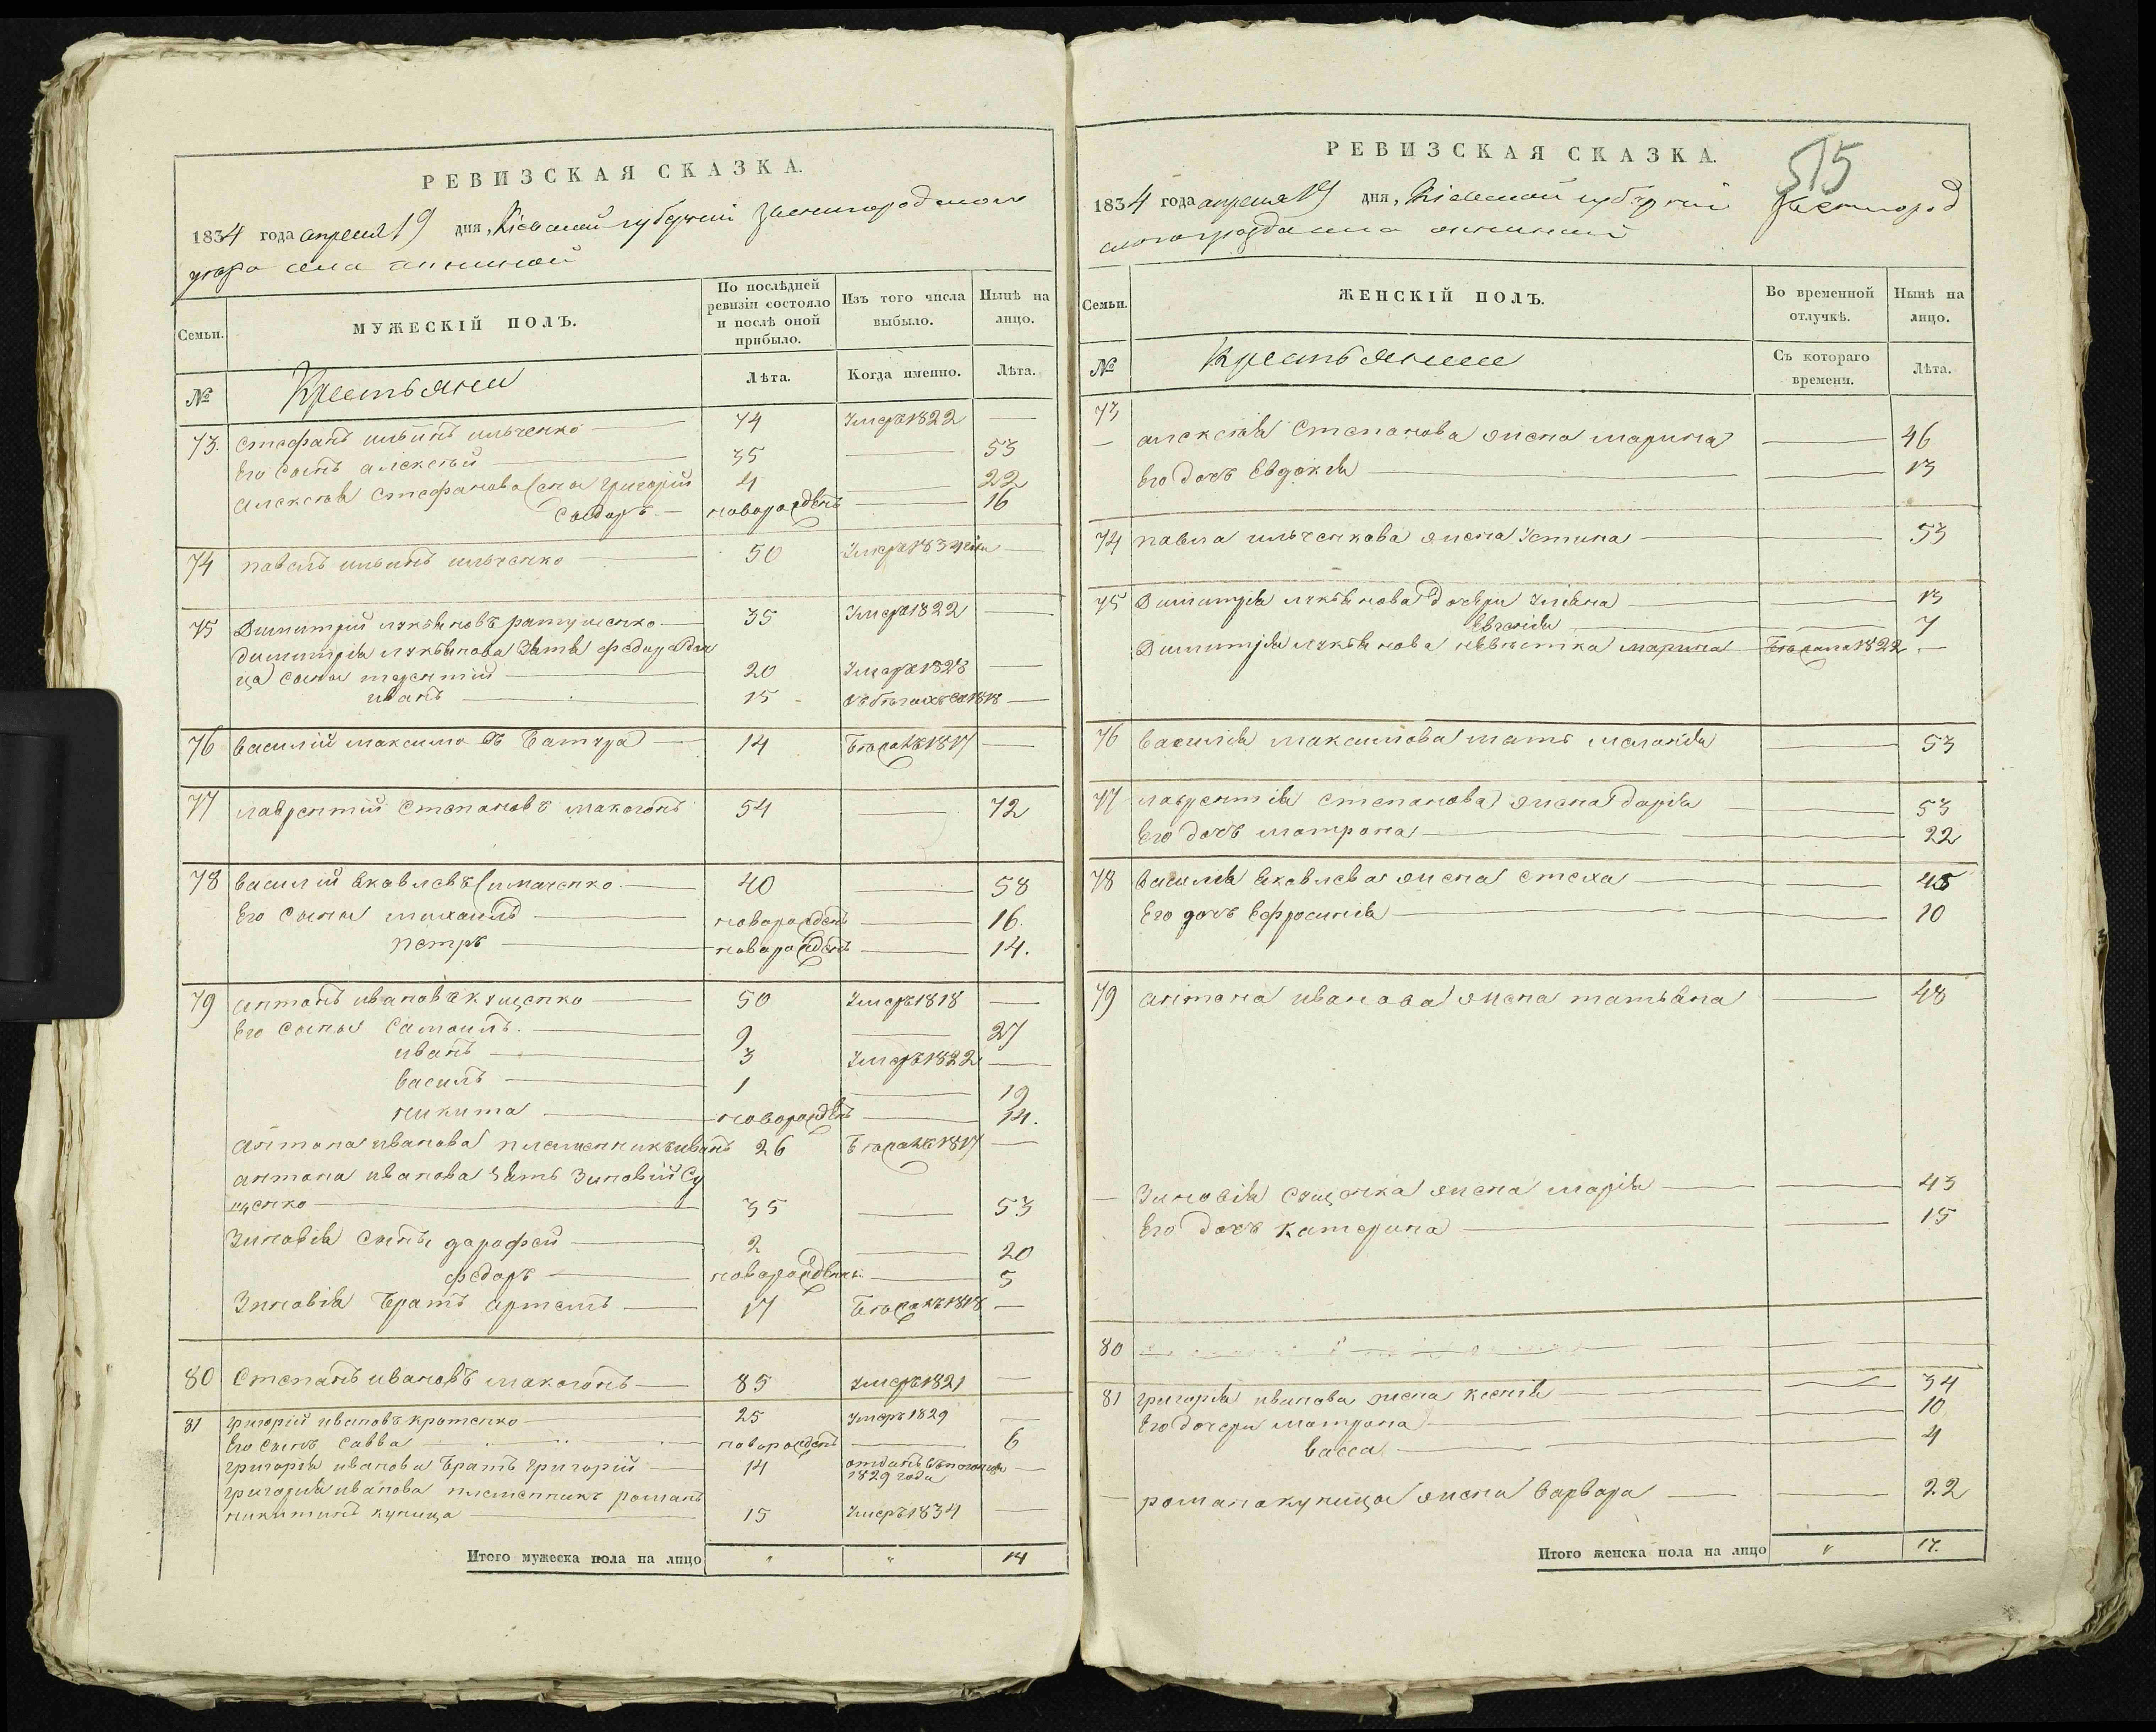 РЕВИЗСКАЯ СКАЗКА.
1834 года апреля 19 дня, Кіевской губерніи Звенигородского
уезда села
Семьи.
МУЖЕСКІЙ ПОЛЪ.
По послѣдней ревизіи состояло и послѣ оной прибыло.
Изъ того числа выбыло.
Нынѣ на лицо.
№
Крестьяни
Лѣта.
Когда именно.
Лѣта.
73. Стефанъ ильинъ ильченко 74 Умеръ 1822
Его Сынъ алексѣй 35 53
алексѣя Стефанова Сны григорій 4 22
Сидоръ новорожденъ 16
74 павелъ ильинъ ильченко 50 Умеръ 1834
75 Димитрій лукъяновъ ратушенко 35 Умеръ 1822
димитрія лукъянова Зятя федора
ца сыны терентій 20 Умеръ 1828
иванъ 15 въ бѣгахъ съ 1818
76 василій максимовъ батура 14 Бѣжалъ 1817
77 лаврентій Степановъ макогонъ 54 72
78 василій яковлевъ Симаченко 40 58
Его Сыны михаилъ новорожденъ 16.
петръ новорожденъ 14.
79 антонъ ивановъ кущенко 50 Умеръ 1818
Его Сыны Самоилъ 9 27
иванъ 3 Умеръ 1822
василь 1 19
никита новорожденъ 14.
антона иванова племенникъ иванъ 26 Бѣжалъ 1817
антона иванова зять Зиновій Су
щенко 35 53
Зиновія Сынъ дорофей 2 20
федоръ новорожденны 5
Зиновія братъ артемъ 17 Бѣжалъ 1818
80 Степанъ ивановъ макогонъ 85 Умеръ 1821
81 григорій ивановъ кротенко 25 Умеръ 1829
Его сынъ Савва новорожденъ 6
григорія иванова братъ григорій 14 отданъ
1829 года
григорія иванова племенникъ романъ
никитинъ куница 15 Умеръ 1834
Итого мужеска пола на лицо " " 14
РЕВИЗСКАЯ СКАЗКА.
515
1834 года апреля 19 дня, Кіевской губерніи Звенигород
Семьи.
ЖЕНСКІЙ ПОЛЪ.
Во временной отлучкѣ.
Нынѣ на лицо.
№
Крестьянне
Съ котораго времени.
Лѣта.
73
алексѣя Степанова жена марина 36
Его дочь Евдокія 13
74 павла ильченкова жена Устина 53
75 Димитрія лукъянова дочери Уліяна 13
Евгенія 7
Димитрія лукъянова невѣстка марина Бѣжала 1822
76 василія максимова мать меланія 53
77 лаврентія степанова жена дарія 53
Его дочь матрона 22
78 василія яковлева жена стеха 45
Его дочь Ефросинія 10
79 антона иванова жена татьяна 48
Зиновія сущенка жена марія 43
Его дочь катерина 15
80
81 григорія иванова жена ксенія 34
Его дочери матрона 10
васса 4
романа куницы жена варвара 22
Итого женска пола на лицо " 17.